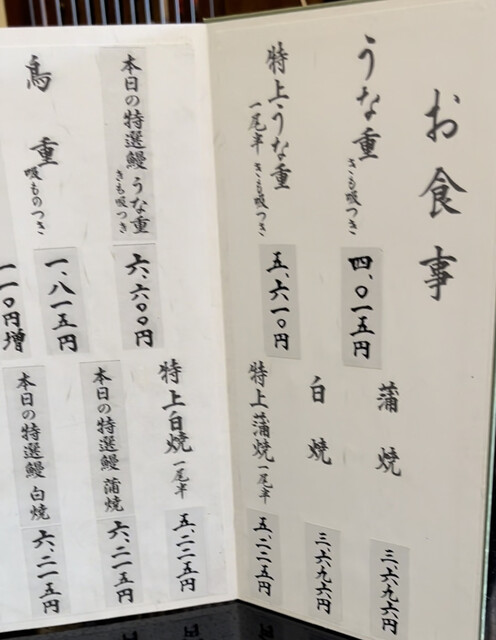 お食事
うな重 きも吸つき
四、〇一五円
特上うな重
一尾半 きも吸つき
五、六一〇円
本日の特選鰻 うな重
きも吸つき
六、六〇〇円
鳥重 吸ものつき
一、八一五円
一一〇円増
蒲焼
三、六九六円
白焼
三、六九六円
特上蒲焼 一尾半
五、二二五円
特上白焼 一尾半
五、二二五円
本日の特選鰻 蒲焼
六、二一五円
本日の特選鰻 白焼
六、二一五円